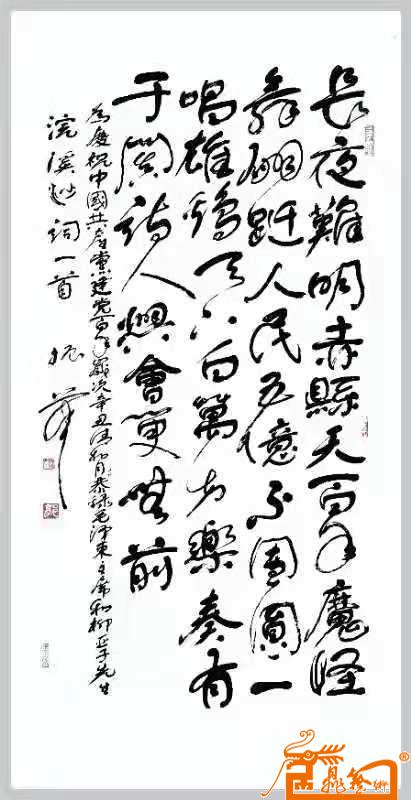 長夜難明赤縣天百年魔怪
舞翩跹人民五億不團圓一
唱雄鷄天下白萬方樂奏有
于闐詩人興會更無前
為慶祝中國共產黨建党百年歲次辛丑清和月恭錄毛澤東主席和柳亞子先生
浣溪沙詞一首